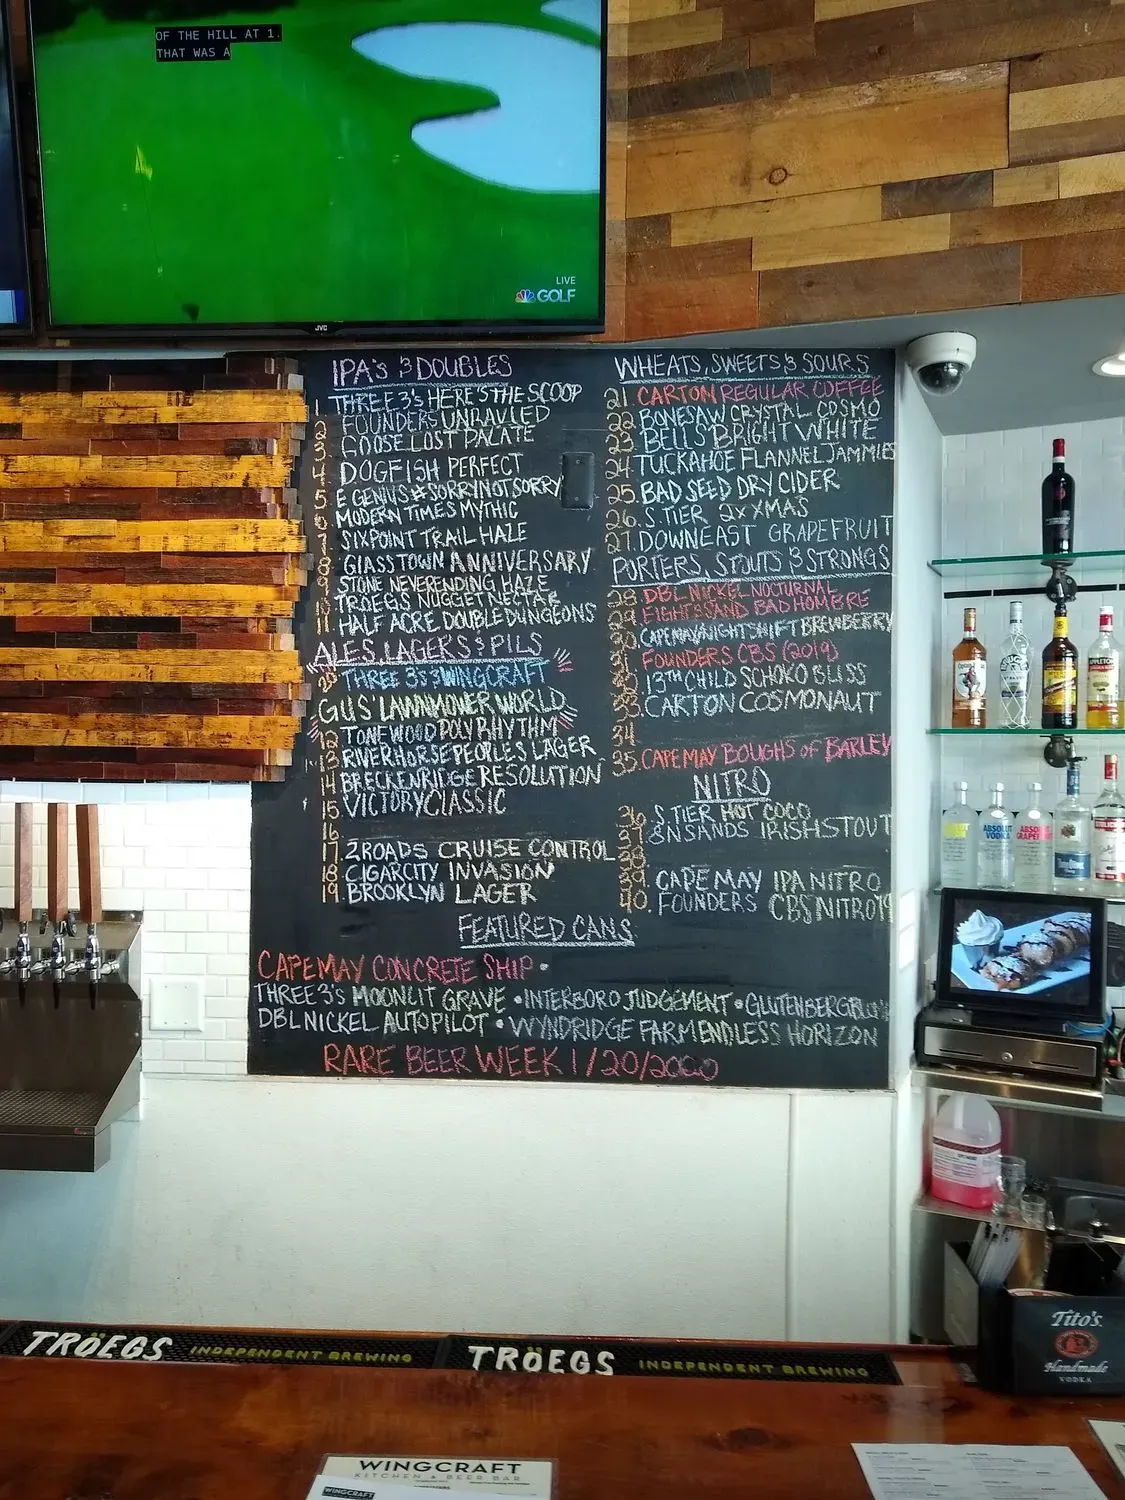 OF THE HILL AT 1.
THAT WAS A
LIVE
GOLF
JVC
IPA'S & DOUBLES
1 THREE 3'S HERE'S THE SCOOP
2 FOUNDERS UNRAVLED
3. GOOSE LOST PALATE
4 DOGFISH PERFECT
5. E GENIUS #SORRYNOTSORRY
6 MODERN TIMES MYTHIC
7 SIXPOINT TRAIL HAZE
8 GLASSTOWN ANNIVERSARY
9 STONE NEVERENDING HAZE
10 TROEGS NUGGET NECTAR
11 HALF ACRE DOUBLE DUNGEONS
ALES, LAGERS & PILS
20 THREE 3'S & WINGCRAFT
GUS LAWNMOWER WORLD
12 TONEWOOD POLYRHYTHM
13 RIVERHORSE PEOPLES LAGER
14 BRECKENRIDGE RESOLUTION
15 VICTORY CLASSIC
16
17. 2ROADS CRUISE CONTROL
18 CIGARCITY INVASION
19. BROOKLYN LAGER
WHEATS, SWEETS & SOURS
21. CARTON REGULAR COFFEE
22 BONESAW CRYSTAL COSMO
23 BELLS BRIGHT WHITE
24. TUCKAHOE FLANNEL JAMMIES
25. BAD SEED DRY CIDER
26. S.TIER 2XXMAS
27. DOWNEAST GRAPEFRUIT
PORTERS, STOUTS & STRONGS
28 DBL NICKEL NOCTURNAL
29 EIGHT & SAND BAD HOMBRE
30. CAPE MAY NIGHTSHIFT BREWBERRY
31 FOUNDERS CBS (2019)
32 13TH CHILD SCHOKO BLISS
33. CARTON COSMONAUT
34
35. CAPE MAY BOUGHS OF BARLEY
NITRO
36 S.TIER HOT COCO
37. 8NSANDS IRISH STOUT
38
39. CAPE MAY IPA NITRO
40. FOUNDERS CBS NITRO 19
FEATURED CANS
CAPE MAY CONCRETE SHIP •
THREE 3'S MOONLIT GRAVE • INTERBORO JUDGEMENT • GLUTENBERG
DBL NICKEL AUTOPILOT • WYNDRIDGE FARM ENDLESS HORIZON
RARE BEER WEEK 1/20/2020
ABSOLUT VODKA
ABSOLUT GRAPEFRUIT
TRÖEGS INDEPENDENT BREWING
TRÖEGS INDEPENDENT BREWING
Tito's
Handmade
VODKA
WINGCRAFT
KITCHEN & BEER BAR
WINGCRAFT